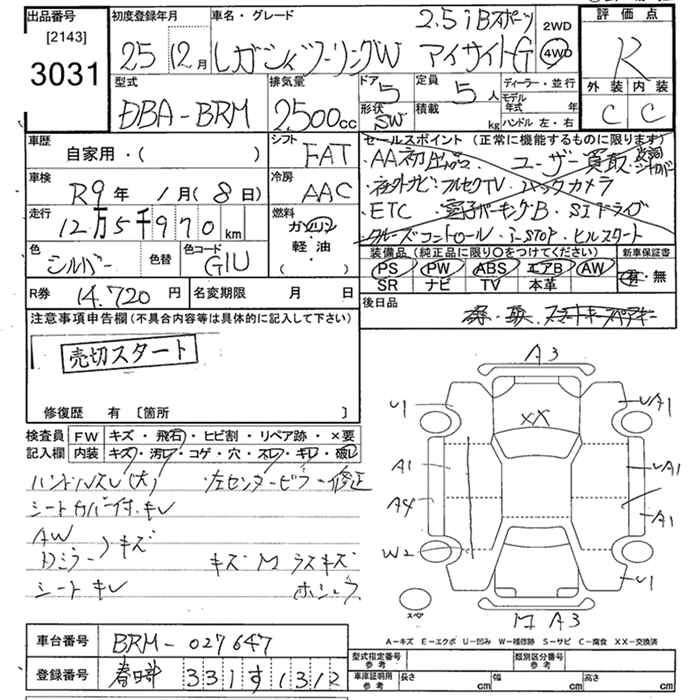 出品番号 初度登録年月 車名・グレード 2.5i Bスポーツ 2WD 評価点
[2143] 25 12月 レガシィツーリングW アイサイトG 4WD R
3031 型式 排気量 ドア 定員 ディーラー・並行 外装 内装
DBA-BRM 2500cc 5 5人 モデル年式 年 C C
形状 積載 kg ハンドル 左・右
SW
車歴 シフト セールスポイント (正常に機能するものに限ります)
自家用・( ) FAT AAC初 ユーザー買取
車検 冷房 社外ナビ・フルセグTV・バックカメラ
R9年 1月(8日) AAC ETC・電子パーキングB・SIドライブ
走行 燃料 クルーズコントロール・i-STOP・ヒルスタート
12万5千970km ガソリン
軽・油
( )
色 色替 色コード 装備品 (純正品に限り○をつけてください) 新車保証書
シルバー G1U PS PW ABS エアB AW 有・無
SR ナビ TV 本革
R券 14,720円 名変期限 月 日 後日品
注意事項申告欄(不具合内容等は具体的に記入して下さい)
売切スタート
修復歴 有 [箇所 ]
検査員 FW キズ・飛石・ヒビ割・リペア跡・×要
記入欄 内装 キズ・汚レ・コゲ・穴・スレ・キレ・破レ
ハンドルスレ(大) 左センターピラー修正
シートカバー付・キレ
AW
Dミラー キズ キズM ラスキズ
シート キレ
A3
U1 XX UA1
A1 UA1
A4 A1
W2 U1
スペア
M A3
A-キズ E-エクボ U-凹み W-補修跡 S-サビ C-腐食 XX-交換済
車台番号 BRM-027647 型式指定番号 参考 類別区分番号 参考
登録番号 春日部 331 す 1312 車庫証明用 参考 長さ cm 幅 cm 高さ cm